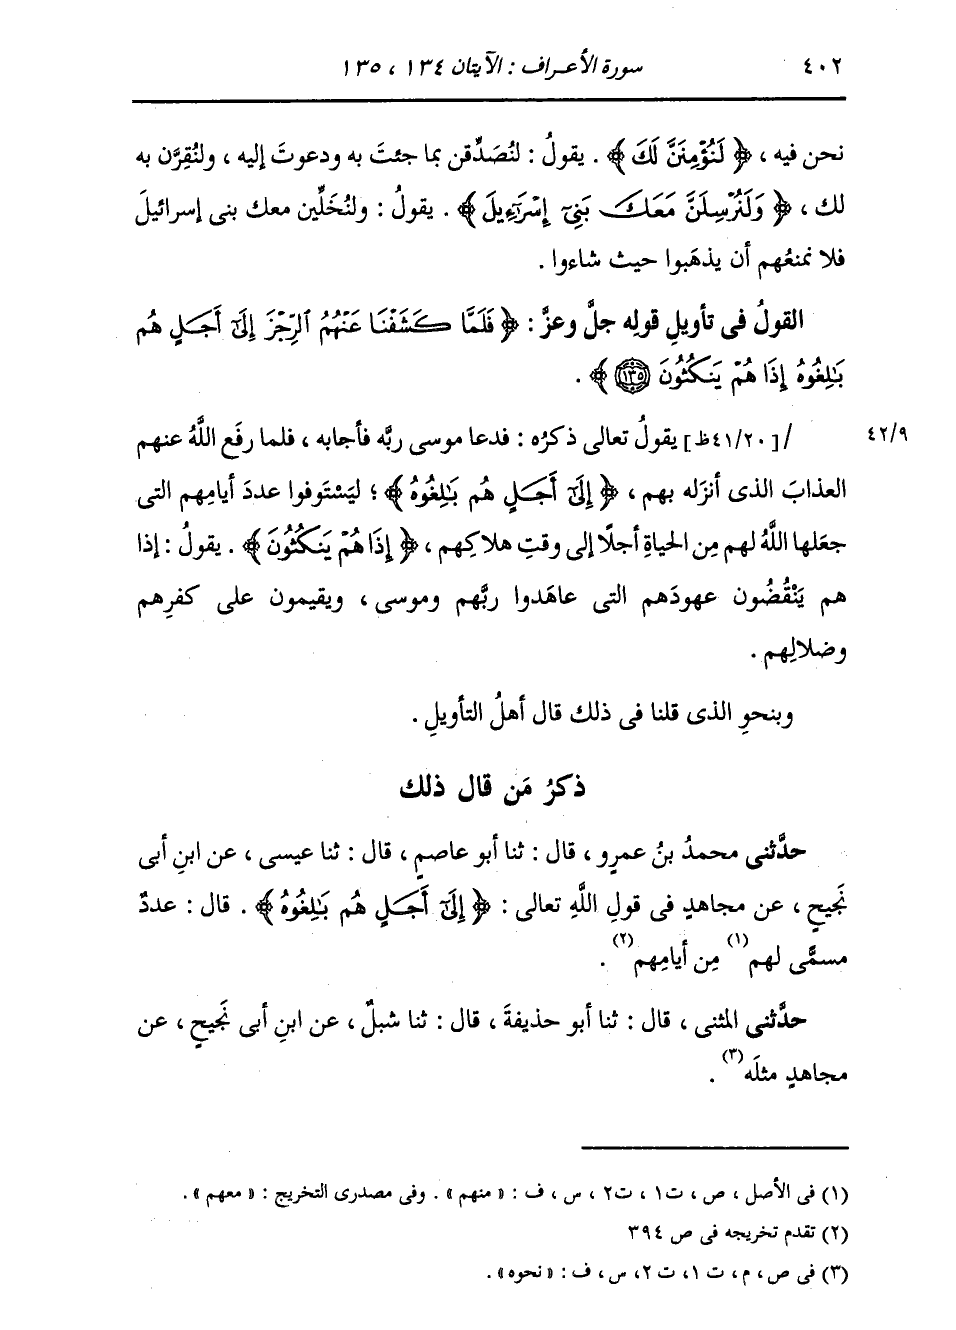 ٤٠٢ سورة الأعراف : الآيتان ١٣٤ ، ١٣٥
نحن فيه ، ﴿ لَنُؤْمِنَنَّ لَكَ ﴾ . يقولُ : لنُصَدِّقن بما جئتَ به ودعوتَ إليه ، ولنُقِرَّن به
لك ، ﴿ وَلَنُرْسِلَنَّ مَعَكَ بَنِىٓ إِسْرَٰٓءِيلَ ﴾ . يقولُ : ولنُخَلِّين معك بنى إسرائيلَ
فلا نمنعُهم أن يذهَبوا حيث شاءوا .
القولُ فى تأويلِ قولِه جلَّ وعزَّ : ﴿ فَلَمَّا كَشَفْنَا عَنْهُمُ ٱلرِّجْزَ إِلَىٰٓ أَجَلٍ هُم
بَٰلِغُوهُ إِذَا هُمْ يَنكُثُونَ ١٣٥ ﴾ .
٤٢/٩ /[٤١/٢٠ظ] يقولُ تعالى ذكرُه : فدعا موسى ربَّه فأجابه ، فلما رفَع اللَّهُ عنهم
العذابَ الذى أنزَله بهم ، ﴿ إِلَىٰٓ أَجَلٍ هُم بَٰلِغُوهُ ﴾ ؛ ليَسْتوفوا عددَ أيامِهم التى
جعَلها اللَّهُ لهم مِن الحياةِ أجلًا إلى وقتِ هلاكِهم ، ﴿ إِذَا هُمْ يَنكُثُونَ ﴾ . يقولُ : إذا
هم يَنْقُضُون عهودَهم التى عاهَدوا ربَّهم وموسى ، ويقيمون على كفرِهم
وضلالِهم .
وبنحوِ الذى قلنا فى ذلك قال أهلُ التأويلِ .
ذكرُ مَن قال ذلك
حدَّثنى محمدُ بنُ عمرٍو ، قال : ثنا أبو عاصمٍ ، قال : ثنا عيسى ، عن ابنِ أبى
نَجيحٍ ، عن مجاهدٍ فى قولِ اللَّهِ تعالى : ﴿ إِلَىٰٓ أَجَلٍ هُم بَٰلِغُوهُ ﴾ . قال : عددٌ
مسمًّى لهم(١) مِن أيامِهم(٢) .
حدَّثنى المثنى ، قال : ثنا أبو حذيفةَ ، قال : ثنا شبلٌ ، عن ابنِ أبى نَجيحٍ ، عن
مجاهدٍ مثلَه(٣) .
(١) فى الأصل ، ص ، ت١ ، ت٢ ، س ، ف : « منهم » . وفى مصدرى التخريج : « معهم » .
(٢) تقدم تخريجه فى ص ٣٩٤
(٣) فى ص ، م ، ت ١، ت ٢، س ، ف : « نحوه » .